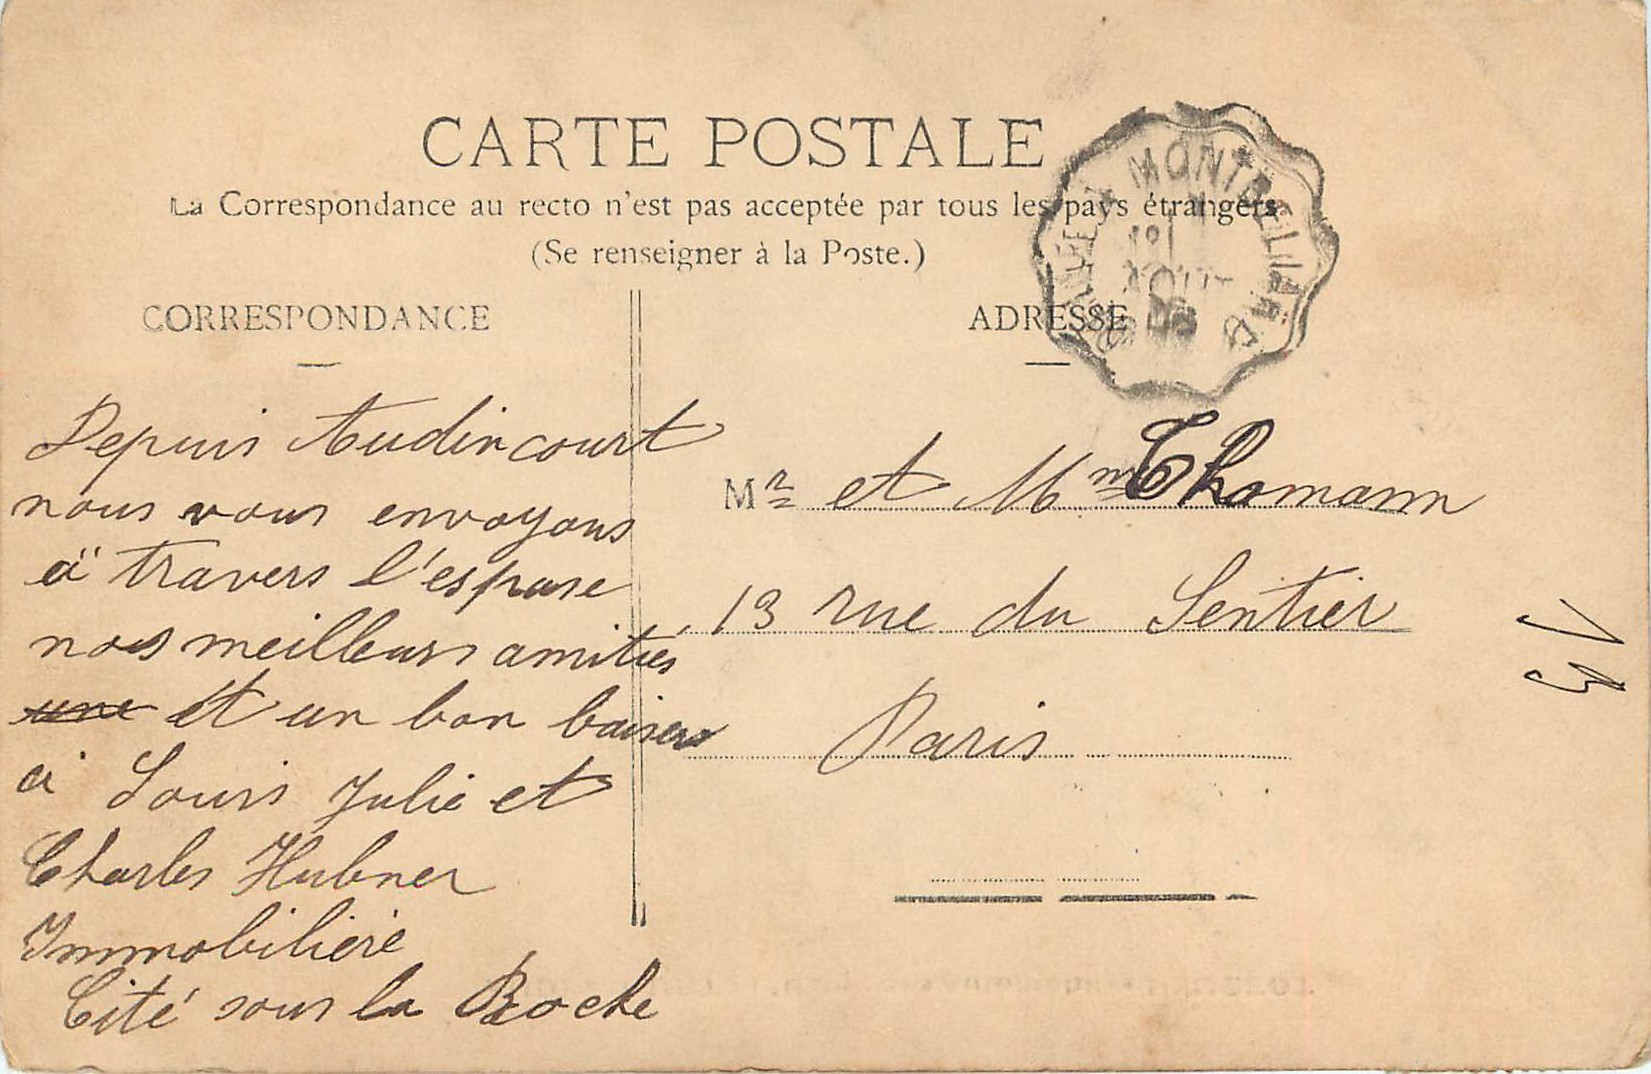 CARTE POSTALE
La Correspondance au recto n'est pas acceptée par tous les pays étrangers
(Se renseigner à la Poste.)
CORRESPONDANCE
ADRESSE
MONTBELIARD
AOUT
Depuis Audincourt
nous vous envoyons
à travers l'espase
nos meilleurs amitiés
une et un bon baisers
à Louis Julie et
Charles Hubner
Immobilière
Cité sous la Roche
Mr et Mme Thomann
13 rue du Sentier
Paris
13